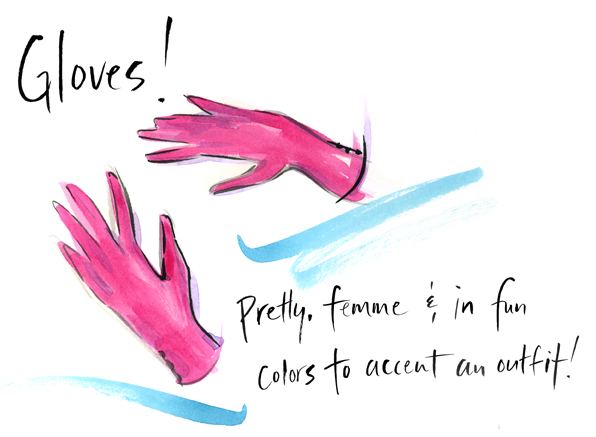 Gloves!
Pretty, femme & in fun
colors to accent an outfit!